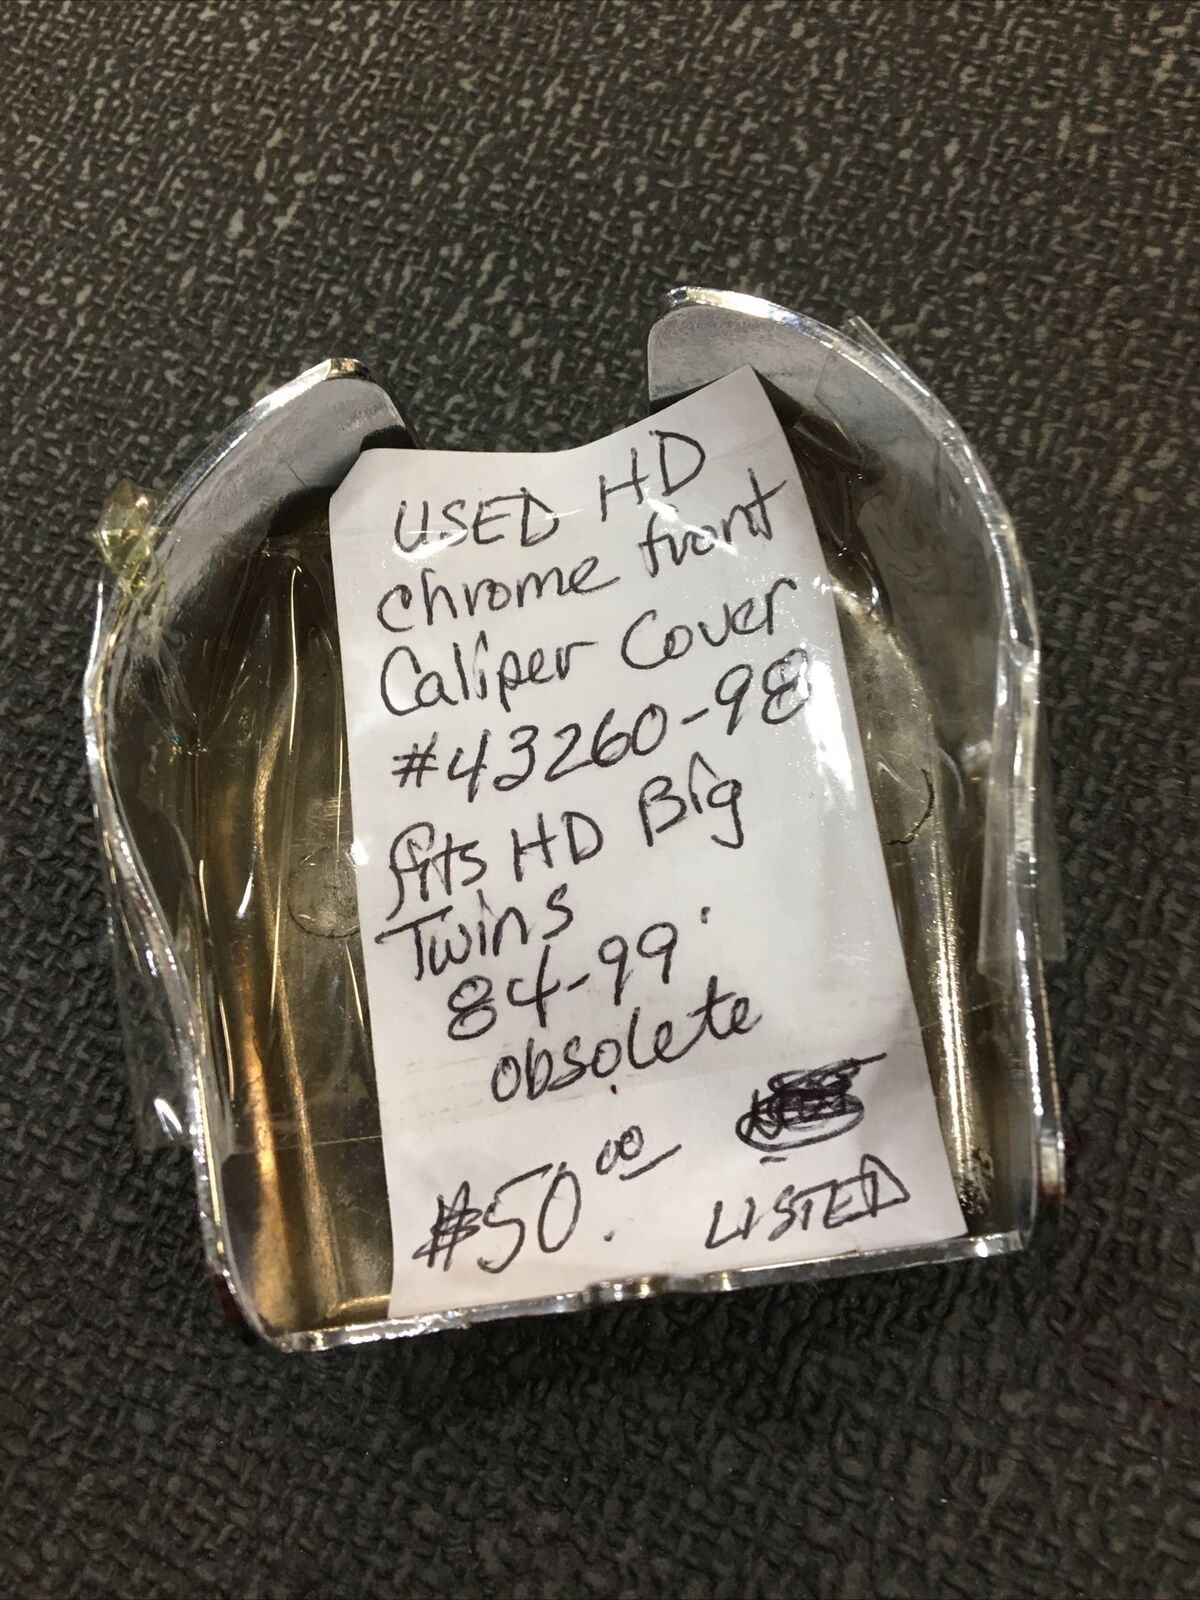 USED HD
chrome front
Caliper Cover
#43260-98
fits HD Big
Twins
84-99
obsolete
$50.00
LISTED